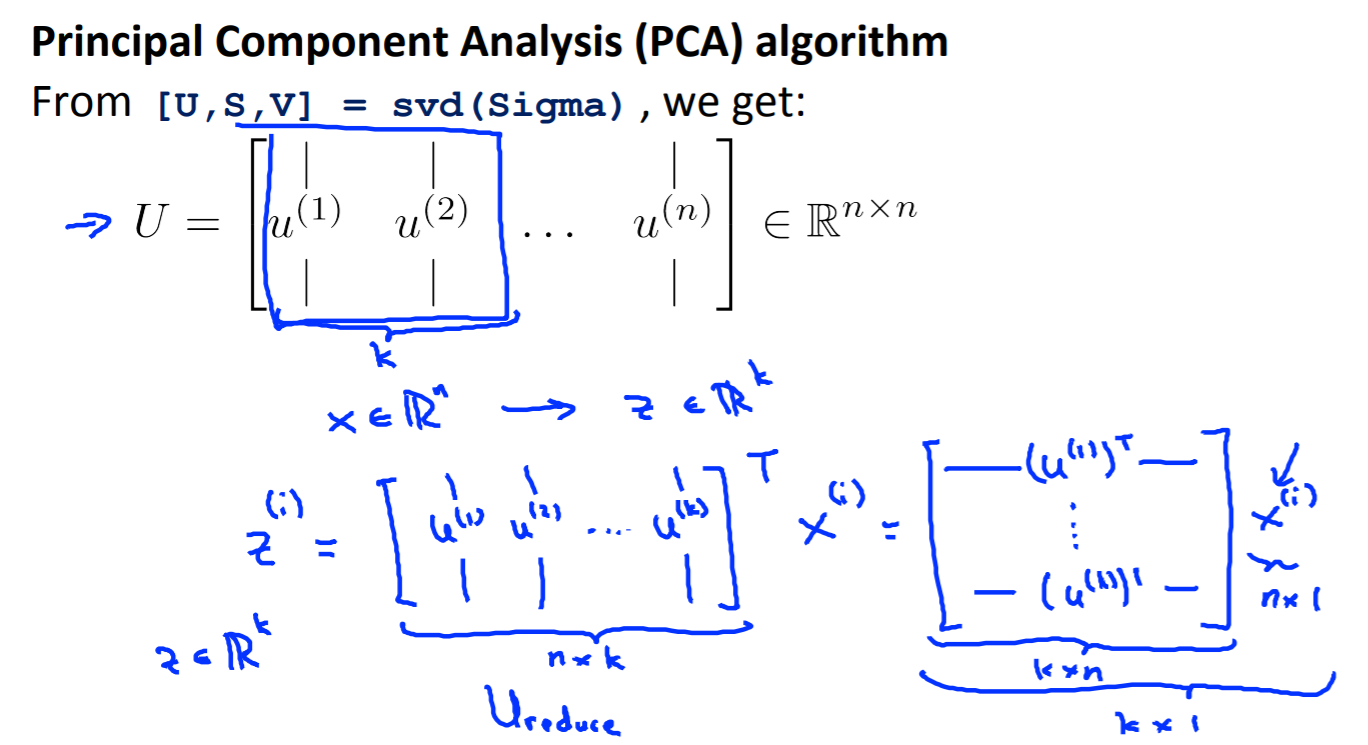 Principal Component Analysis (PCA) algorithm
From [U,S,V] = svd(Sigma) , we get:
→ U = [ | | | u⁽¹⁾ u⁽²⁾ … u⁽ⁿ⁾ | | | ] ∈ ℝⁿˣⁿ
k
x ∈ ℝⁿ → z ∈ ℝᵏ
z⁽ⁱ⁾ = [ | | | u⁽¹⁾ u⁽²⁾ … u⁽ᵏ⁾ | | | ]ᵀ x⁽ⁱ⁾ = [ — (u⁽¹⁾)ᵀ — ⋮ — (u⁽ᵏ⁾)ᵀ — ] x⁽ⁱ⁾
n×1
z ∈ ℝᵏ
n×k
k×n
Ureduce
k×1